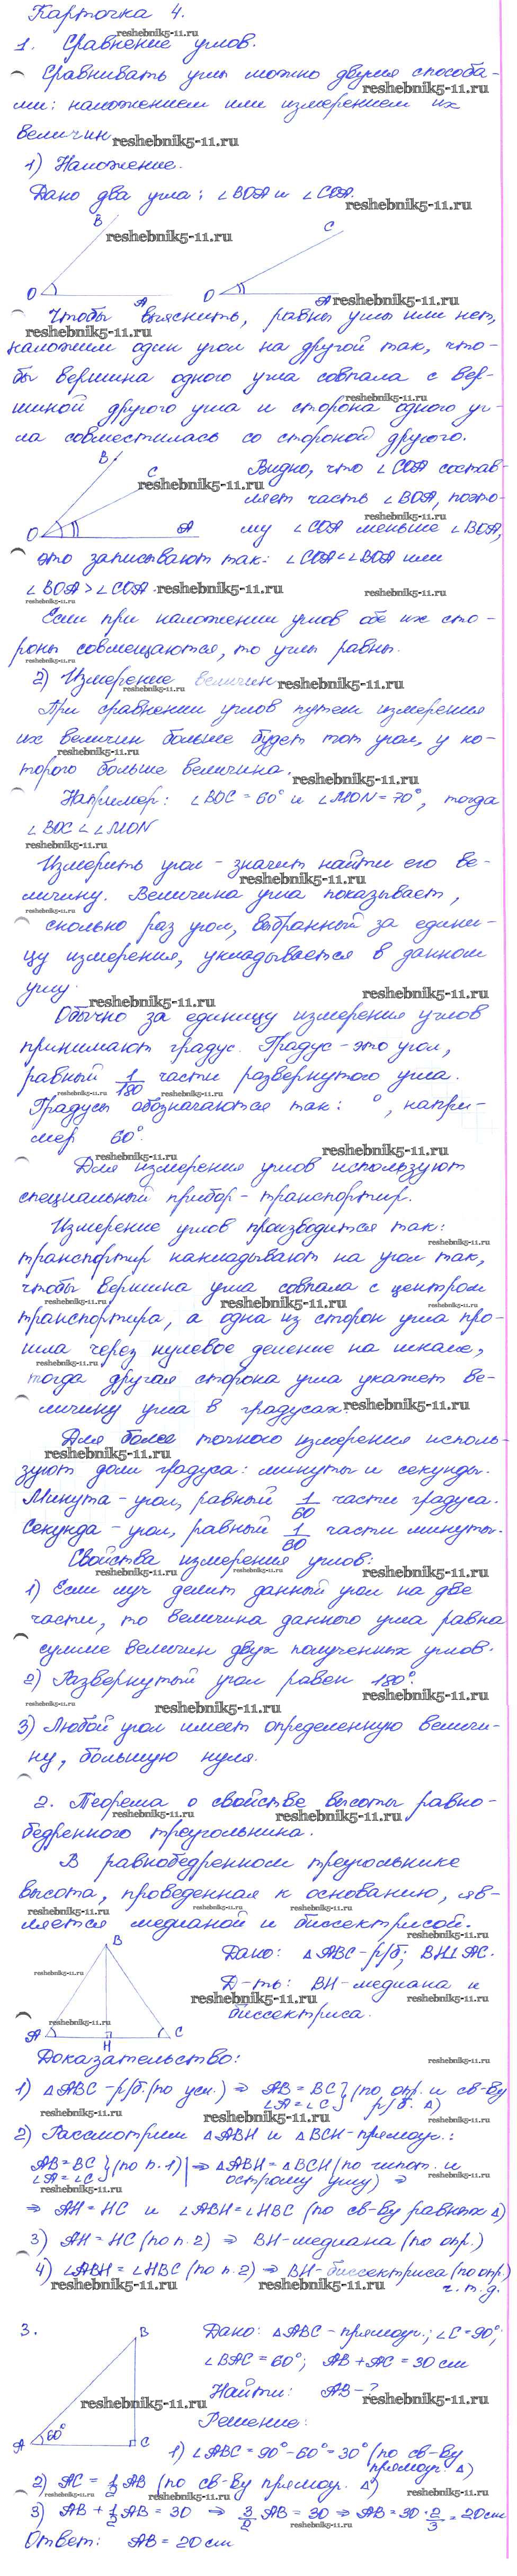 Карточка 4.
1. Сравнение углов.
Сравнивать углы можно двумя способа-
ми: наложением или измерением их
величин
1) Наложение.
Дано два угла: ∠BOA и ∠COA.
B
C
O
A
O
A
Чтобы выяснить, равны углы или нет,
наложим один угол на другой так, что-
бы вершина одного угла совпала с вер-
шиной другого угла и сторона одного уг-
ла совместилась со стороной другого.
B
C
O
A
Видно, что ∠COA состав-
ляет часть ∠BOA, поэто-
му ∠COA меньше ∠BOA,
это записывают так: ∠COA < ∠BOA или
∠BOA > ∠COA.
Если при наложении углов обе их сто-
роны совмещаются, то углы равны.
2) Измерение величин
При сравнении углов путем измерения
их величин больше будет тот угол, у ко-
торого больше величина.
Например: ∠BOC = 60° и ∠MON = 70°, тогда
∠BOC < ∠MON
Измерить угол - значит найти его ве-
личину. Величина угла показывает,
сколько раз угол, выбранный за едини-
цу измерения, укладывается в данном
углу.
Обычно за единицу измерения углов
принимают градус. Градус - это угол,
равный 1/180 части развернутого угла.
Градусы обозначаются так: °, напри-
мер 60°.
Для измерения углов используют
специальный прибор - транспортир.
Измерение углов производится так:
транспортир накладывают на угол так,
чтобы вершина угла совпала с центром
транспортира, а одна из сторон угла про-
шла через нулевое деление на шкале,
тогда другая сторона угла укажет ве-
личину угла в градусах.
Для более точного измерения исполь-
зуют доли градуса: минуты и секунды.
Минута - угол, равный 1/60 части градуса.
Секунда - угол, равный 1/60 части минуты.
Свойства измерения углов:
1) Если луч делит данный угол на две
части, то величина данного угла равна
сумме величин двух полученных углов.
2) Развернутый угол равен 180°.
3) Любой угол имеет определенную величи-
ну, большую нуля.
2. Теорема о свойстве высоты равно-
бедренного треугольника.
В равнобедренном треугольнике
высота, проведенная к основанию, яв-
ляется медианой и биссектрисой.
B
A
H
C
Дано: △ABC - р/б; BH⊥AC.
Д-ть: BH - медиана и
биссектриса.
Доказательство:
1) △ABC - р/б. (по усл.) ⇒ AB = BC } (по опр. и св-ву
∠A = ∠C } р/б. △)
2) Рассмотрим △ABH и △BCH - прямоуг.:
AB = BC } (по п. 1) | ⇒ △ABH = △BCH (по гипот. и
∠A = ∠C } острому углу) ⇒
⇒ AH = HC и ∠ABH = ∠HBC (по св-ву равных △)
3) AH = HC (по п. 2) ⇒ BH - медиана (по опр.)
4) ∠ABH = ∠HBC (по п. 2) ⇒ BH - биссектриса (по опр.)
ч. т. д.
3.
B
A
60°
C
Дано: △ABC - прямоуг.; ∠C = 90°;
∠BAC = 60°; AB + AC = 30 см
Найти: AB - ?
Решение:
1) ∠ABC = 90° - 60° = 30° (по св-ву
прямоуг. △)
2) AC = 1/2 AB (по св-ву прямоуг. △)
3) AB + 1/2 AB = 30 ⇒ 3/2 AB = 30 ⇒ AB = 30 · 2/3 = 20 см
Ответ: AB = 20 см
reshebnik5-11.ru